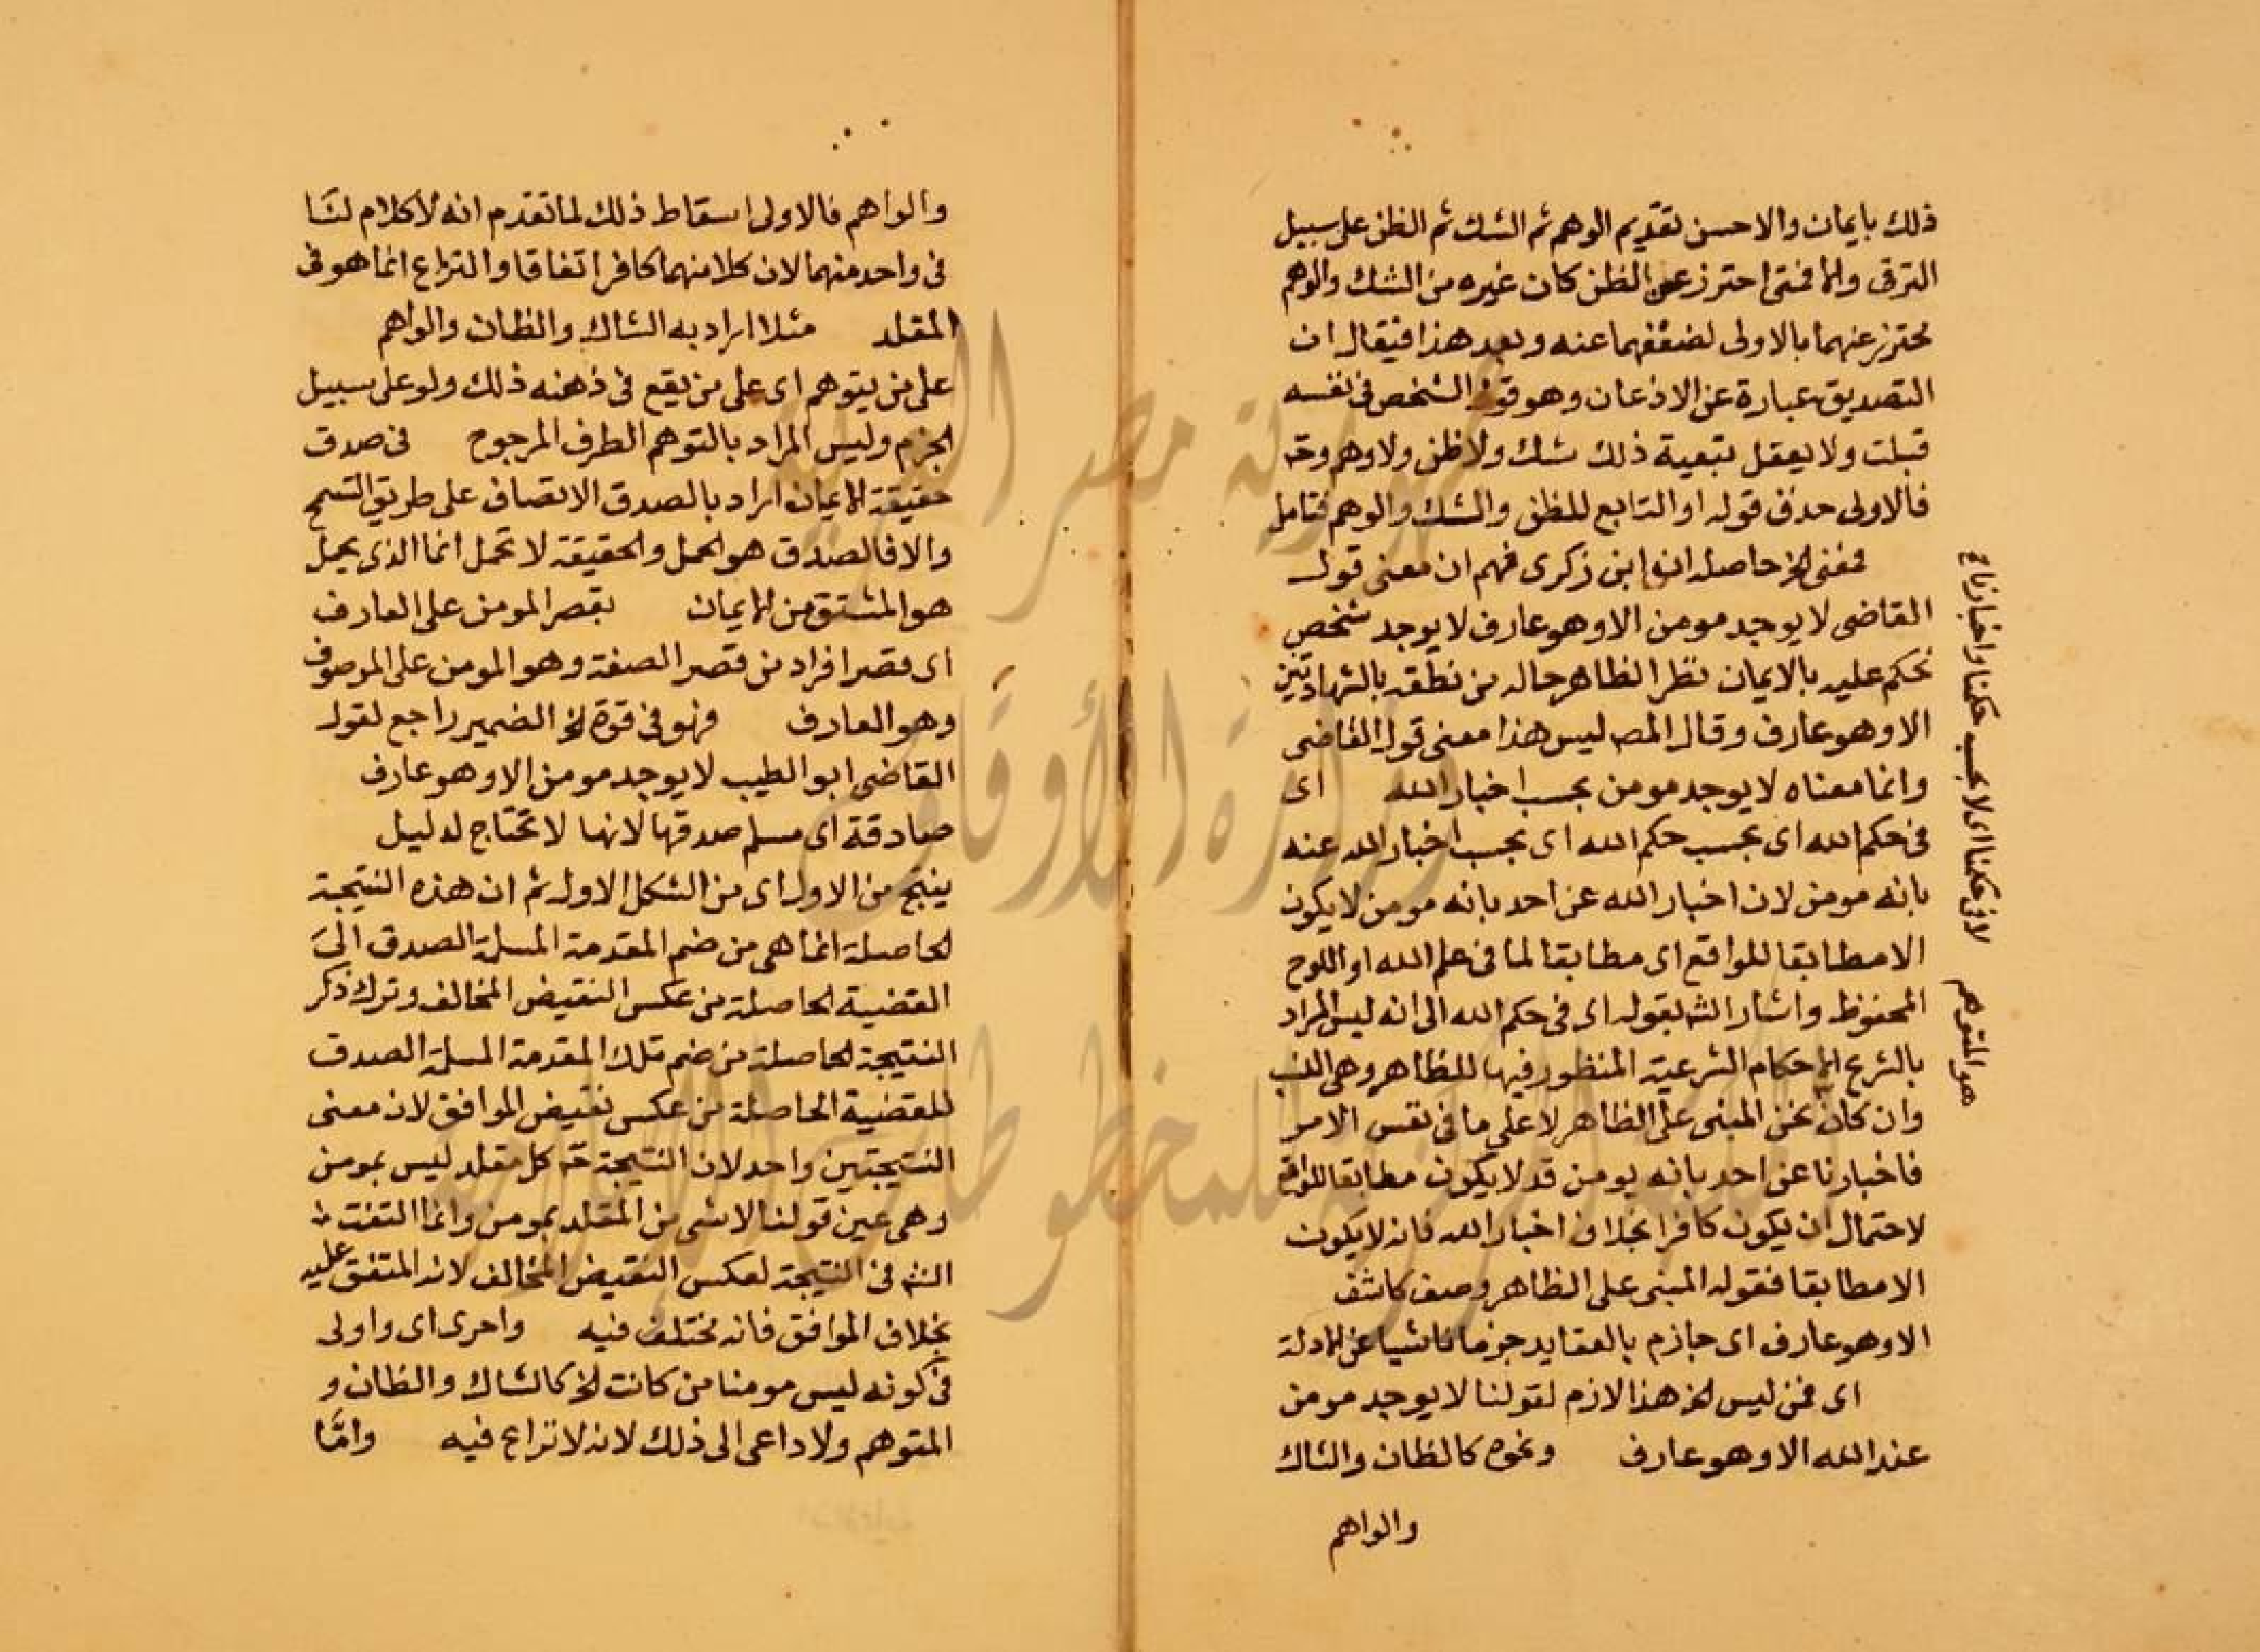 ذلك بايمان والاحسن تقديم الوهم ثم الشك ثم الظن على سبيل
الترقى والا فمتى احترز عن الظن كان غيره من الشك والوهم
محترز عنهما بالاولى لضعفهما عنه وبعد هذا فيقال ان
التصديق عبارة عن الاذعان وهو قول الشخص فى نفسه
قبلت ولا يعقل تبعية ذلك شك ولا ظن ولا وهم وح
فالاولى حذف قوله او التابع للظن والشك والوهم فتامل
فمعنى الخ حاصله ان ابن زكرى فهم ان معنى قول
القاضى لا يوجد مومن الا وهو عارف لا يوجد شخص
نحكم عليه بالايمان نظرا لظاهر حاله من نطقه بالشهادتين
الا وهو عارف وقال المصـ ليس هذا معنى قول القاضى
وانما معناه لا يوجد مومن بحسب اخبار الله اى
فى حكم الله اى بحسب حكم الله اى بحسب اخبار الله عنه
بانه مومن لان اخبار الله عن احد بانه مومن لا يكون
الا مطابقا للواقع اى مطابقا لما فى علم الله او اللوح
المحفوظ واشار الش بقوله اى فى حكم الله الى انه ليس المراد
بالشرع الاحكام الشرعية المنظور فيها للظاهر وهى النسب
وان كان نحن المبنى على الظاهر لا على ما فى نفس الامر
فاخبارنا عن احد بانه يومن قد لا يكون مطابقا للواقع
لاحتمال ان يكون كافرا بخلاف اخبار الله فانه لا يكون
الا مطابقا فقوله المبنى على الظاهر وصف كاشف
الا وهو عارف اى جازم بالعقايد جزما ناشيا عن الادلة
اى فمن ليس الخ هذا لازم لقولنا لا يوجد مومن
عند الله الا وهو عارف ونحوه كالظان والشاك
والواهم
لان حكمنا اى لا بحسب حكمنا واخبارنا
هو المتوهم
والواهم فالاولى اسقاط ذلك لما تقدم انه لا كلام لنا
فى واحد منهما لان كلا منهما كافر اتفاقا والنزاع انما هو فى
المقلد مثلا اراد به الشاك والظان والواهم
على من يتوهم اى على من يقع فى ذهنه ذلك ولو على سبيل
الجزم وليس المراد بالتوهم الطرف المرجوح فى صدق
حقيقة الايمان اراد بالصدق الاتصاف على طريق التسمح
والا فالصدق هو الحمل والحقيقة لا تحمل انما الذى يحمل
هو المشتق من الايمان بقصر المومن على العارف
اى قصر افراد من قصر الصفة وهو المومن على الموصوف
وهو العارف فهو فى قوة الخ الضمير راجع لقول
القاضى ابو الطيب لا يوجد مومن الا وهو عارف
صادقة اى مسلم صدقها لانها لا تحتاج لدليل
ينتج من الاول اى من الشكل الاول ثم ان هذه النتيجة
الحاصلة انما هى من ضم المقدمة المسلمة الصدق الى
القضية الحاصلة من عكس النقيض المخالف وترك ذكر
النتيجة الحاصلة من ضم تلك المقدمة المسلمة الصدق
للقضية الحاصلة من عكس نقيض الموافق لان معنى
النتيجتين واحد لان النتيجة ح كل مقلد ليس بمومن
وهى عين قولنا لا شى من المقلد بمومن وانما التفت
الش فى النتيجة لعكس النقيض المخالف لانه المتفق عليه
بخلاف الموافق فانه مختلف فيه واحرى اى واولى
فى كونه ليس مومنا من كانت الخ كالشاك والظان و
المتوهم ولا داعى الى ذلك لانه لا نزاع فيه واما
جمهورية مصر العربية
وزارة الأوقاف
المكتبة المركزية للمخطوطات الإسلامية